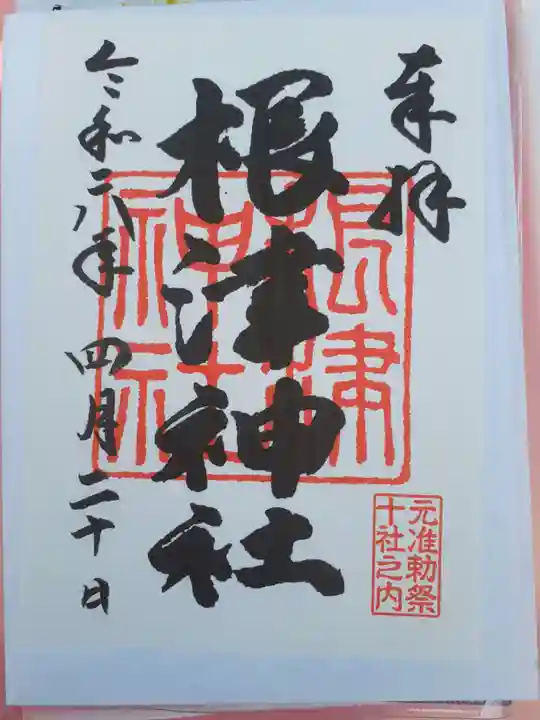 奉拝
根津神社
根津
神社
令和六年 四月二十日
元准勅祭
十社之内